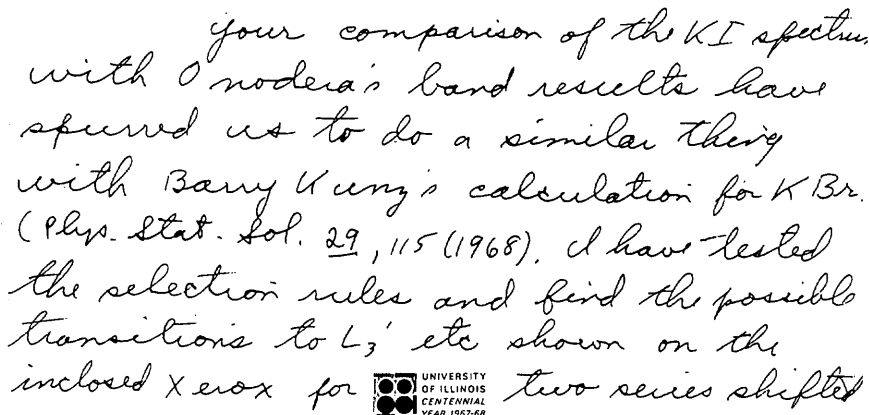 your comparison of the KI spectru
with Onodera's band results have
spurred us to do a similar thing
with Barry Kunz's calculation for KBr.
(Phys. Stat. Sol. 29, 115 (1968). I have tested
the selection rules and find the possible
transitions to L3' etc shown on the
inclosed Xerox for two series shifted
UNIVERSITY
OF ILLINOIS
CENTENNIAL
YEAR 1967-68